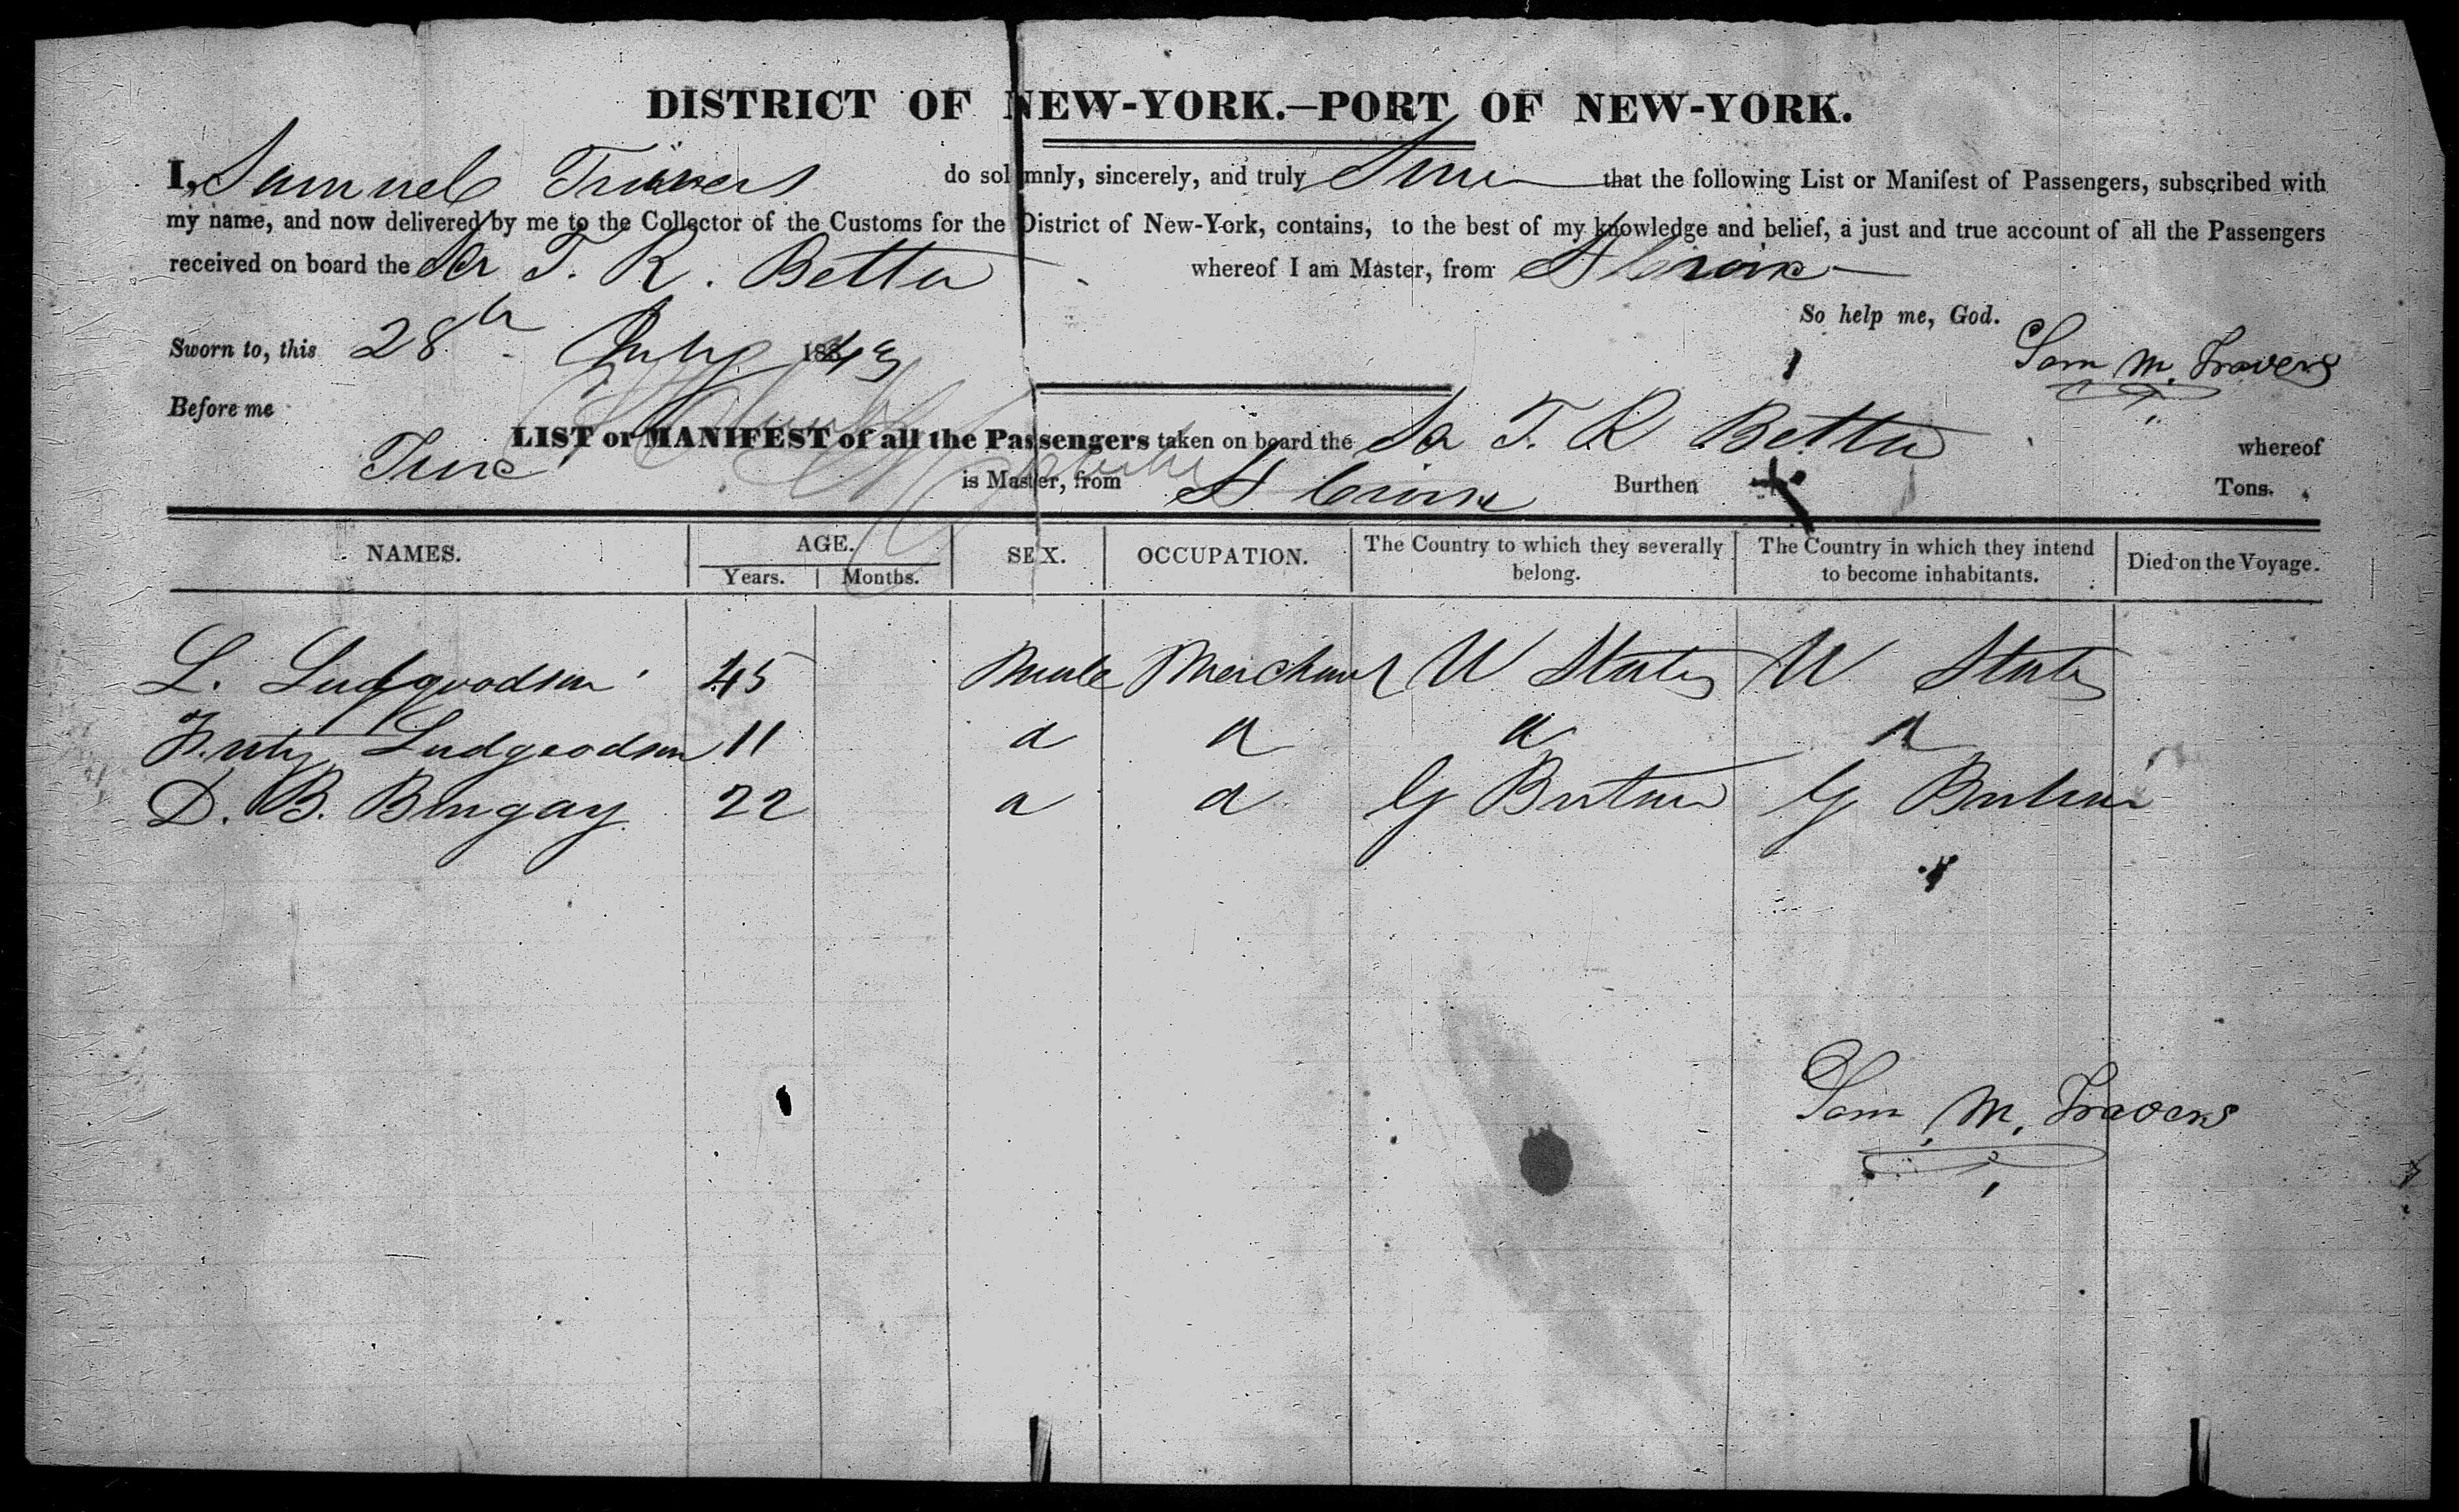 DISTRICT OF NEW-YORK.—PORT OF NEW-YORK.
I, Samuel Travers do solemnly, sincerely, and truly Swear that the following List or Manifest of Passengers, subscribed with
my name, and now delivered by me to the Collector of the Customs for the District of New-York, contains, to the best of my knowledge and belief, a just and true account of all the Passengers
received on board the Scr T. R. Betton whereof I am Master, from St Croix
So help me, God.
Sworn to, this 28th July 1843 Sam M. Travers
Before me
LIST or MANIFEST of all the Passengers taken on board the Sc T. R Betton whereof
is Master, from St Croix Burthen Tons.
NAMES. AGE. SEX. OCCUPATION. The Country to which they severally belong. The Country in which they intend to become inhabitants. Died on the Voyage.
Years. Months.
L. 45 Male Merchant U States U States
11 d d d d
D. B. Bingay 22 d d G Britain G Britain
Sam M. Travers